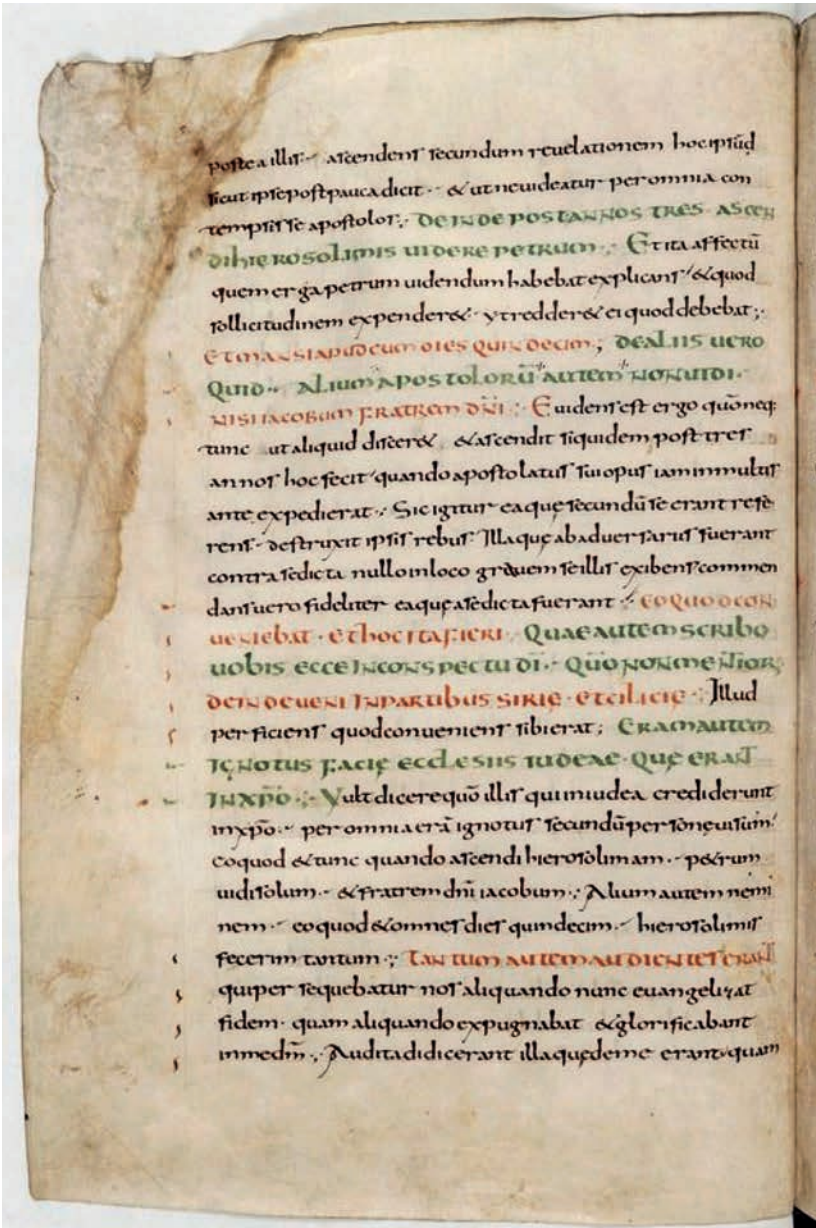 postea illis · ascendens secundum reuelationem hoc ipsūd
sicut ipse post pauca dicit · & ut ne uideatur per omnia con
tempsisse apostolos ·, deinde post annos tres ascen
di hierosolimis uidere petrum ·, Et ita affectū
quem erga petrum uidendum habebat explicans & quod
sollicitudinem expender& yt redder& ei quod debebat ;·
Et mansi apud eum dies quindecim ; de aliis uero
quid · alium apostolorū autem non uidi ·
nisi iacobum fratrem dn̄i ·, Euidens est ergo quō neq:
tunc ut aliquid discer& & ascendit siquidem post tres
annos hoc fecit quando apostolatus sui opus iam in multis
ante expedierat ·, Sic igitur ea que secundū se erant refe
rens · destruxit ipsis rebus Illa quę ab aduersariis fuerant
contra se dicta nullo in loco grauem se illis exibens commen
dans uero fideliter ea quę a se dicta fuerant ·, eo quod con
ueniebat · et hoc ita fieri Quae autem scribo
uobis ecce in conspectu dī · quō non mentior
deinde ueni in partibus sirię · et cilicię ·, Illud
perficiens quod conueniens sibi erat ; Eram autem
ignotus facię ecclesiis iudeae · quę erant
in xp̄o ·, Vult dicere quō illis qui in iudea crediderunt
in xp̄o · per omnia erā ignotus secundū personę uisum
eo quod & tunc quando ascendi hierosolimam · p&rum
uidi solum · & fratrem dn̄i iacobum ·, Alium autem nemi
nem · eo quod & omnes dies quindecim · hierosolimis
fecerim tantum ·, Tantum autem audientes erant
qui persequebatur nos aliquando nunc euangelizat
fidem · quam aliquando expugnabat & glorificabant
in me dm̄ ·, Audita didicerant illa quę de me erant · quam